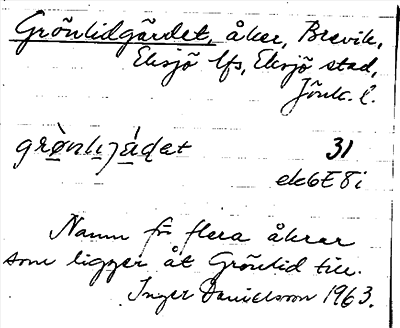 Grönlidgärdet, åker, Brevik,
Eksjö lfs, Eksjö stad,
Jönk. l.
31
ek6E8i
Namn på flera åkrar
som ligger åt Grönlid till.
Inger Danielsson 1963.